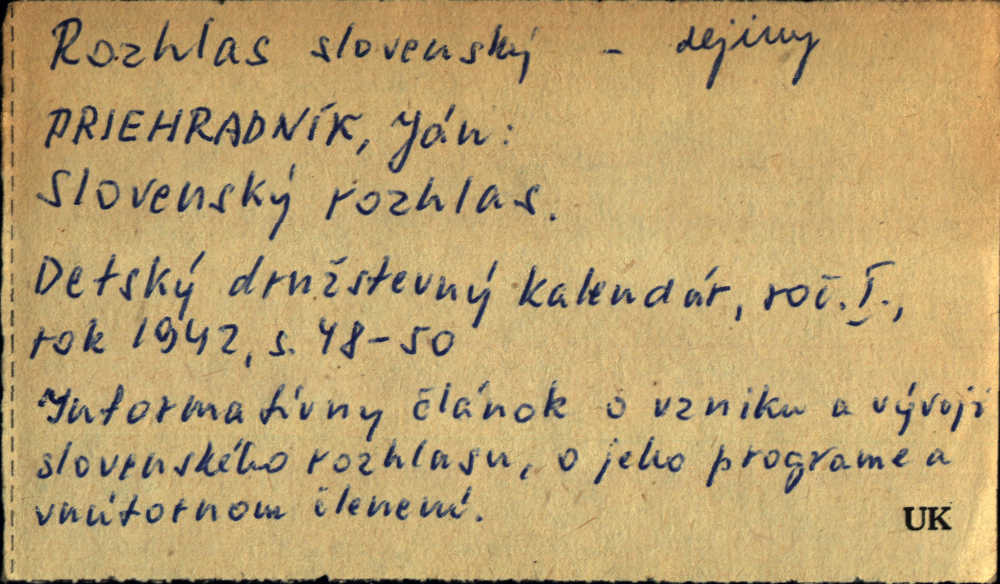 Rozhlas slovenský - dejiny
PRIEHRADNÍK, Ján:
Slovenský rozhlas.
Detský družstevný kalendár, roč. I.,
rok 1942, s. 48-50
Informatívny článok o vzniku a vývoji
slovenského rozhlasu, o jeho programe a
vnútornom členení.
UK